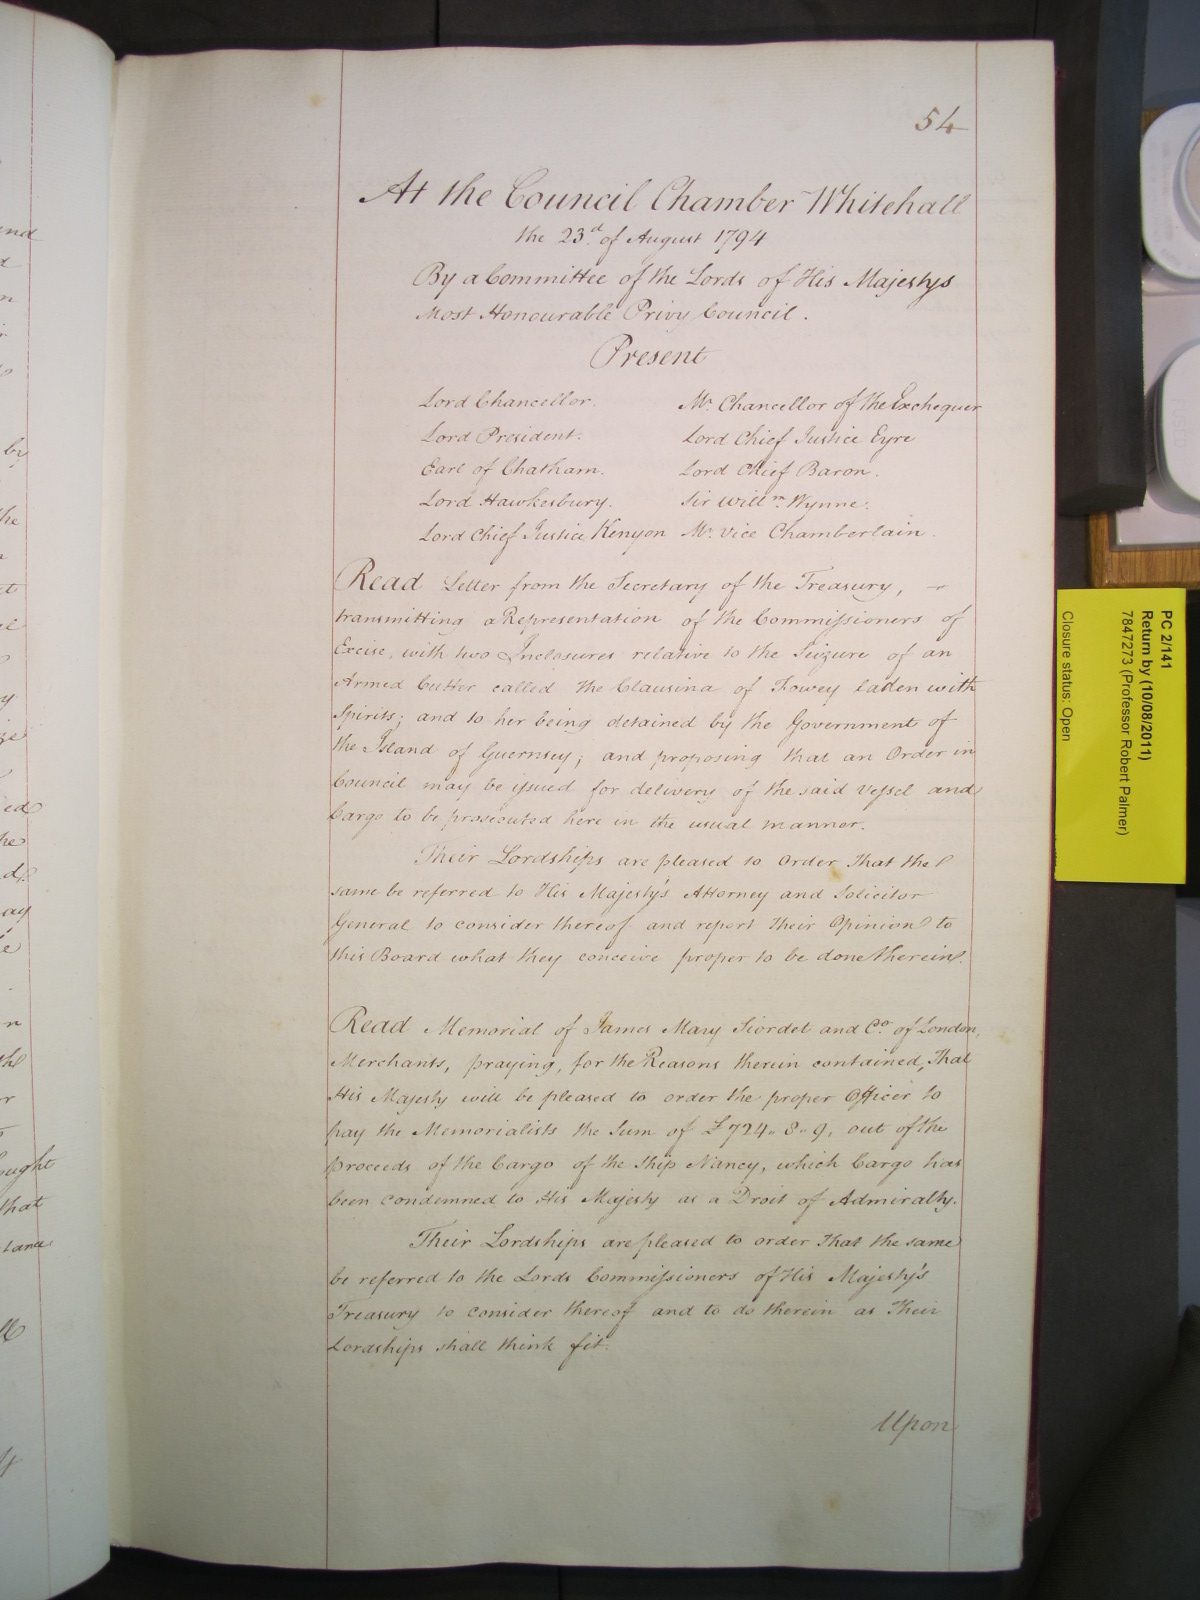 54
At the Council Chamber Whitehall
the 23.d of August 1794
By a Committee of the Lords of His Majestys
Most Honourable Privy Council.
Present
Lord Chancellor.
Lord President.
Earl of Chatham.
Lord Hawkesbury.
Lord Chief Justice Kenyon
Mr. Chancellor of the Exchequer
Lord Chief Justice Eyre
Lord Chief Baron.
Sir Willm. Wynne.
Mr. Vice Chamberlain.
Read Letter from the Secretary of the Treasury, —
transmitting a Representation of the Commissioners of
Excise, with two Inclosures relative to the Seizure of an
Armed Cutter called the Clausina of Fowey laden with
Spirits; and to her being detained by the Government of
the Island of Guernsey; and proposing that an Order in
Council may be issued for delivery of the said Vessel and
Cargo to be prosecuted here in the usual manner.
Their Lordships are pleased to Order That the
same be referred to His Majesty's Attorney and Solicitor
General to consider thereof and report their Opinion to
this Board what they conceive proper to be done therein.
Read Memorial of James Mary Siordet and Co. of London,
Merchants, praying, for the Reasons therein contained, That
His Majesty will be pleased to order the proper Officer to
pay the Memorialists the Sum of £724.. 8.. 9, out of the
proceeds of the Cargo of the Ship Nancy, which Cargo has
been condemned to His Majesty as a Droit of Admiralty.
Their Lordships are pleased to order That the same
be referred to the Lords Commissioners of His Majesty's
Treasury to consider thereof and to do therein as Their
Lordships shall think fit.
Upon
PC 2/141
Return by (10/08/2011)
7847273 (Professor Robert Palmer)
Closure status: Open